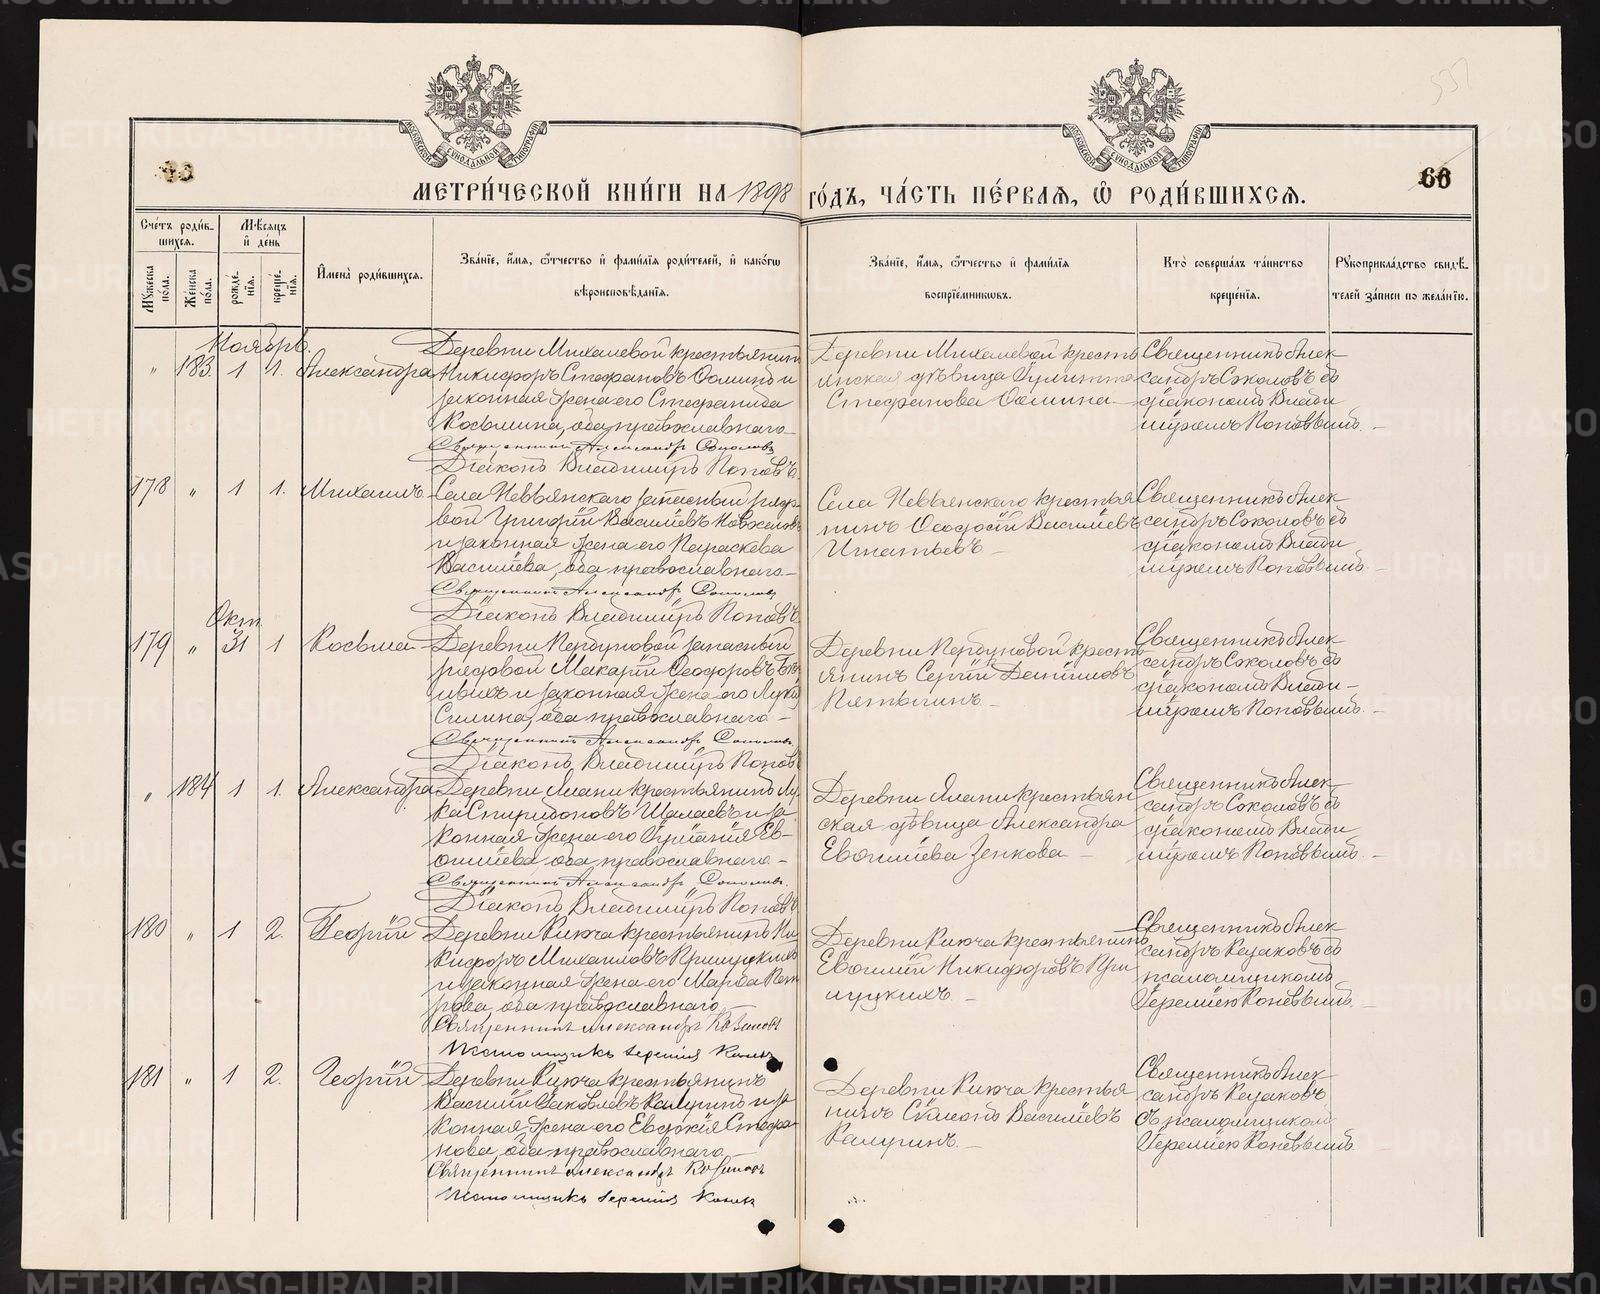 МЕТРИ́ЧЕСКОЙ КНИ́ГИ НА 1898 ГО́ДЪ, ЧА́СТЬ ПЕ́РВАѦ, Ѡ҆ РОДИ́ВШИХСѦ.
66
Сче́тъ роди́в-
шихсѧ.
Мꙋжеска по́ла.
Же́нска по́ла.
Мѣ́сѧцъ
и҆ де́нь
рожде́-нїѧ.
креще́-нїѧ.
И҆мена̀ роди́вшихсѧ.
Зва́нїе, и҆́мѧ, ѻ҆́тчество и҆ фами́лїѧ роди́телей, и҆ како́гѡ
вѣроисповѣ́данїѧ.
Зва́нїе, и҆́мѧ, ѻ҆́тчество и҆ фами́лїѧ
воспрїе́мникѡвъ.
Кто̀ соверша́лъ та́инство
креще́нїѧ.
Рꙋкоприкла́дство свидѣ́-
телей за́писи по жела́нїю.
Ноябрь.
" 183. 1 1. Александра
Деревни Михалевой крестьянинъ
Никифоръ Стефановъ Ѳоминъ и
законная жена его Стефанида
Косьмина, оба православнаго
Священникъ Александръ Соколовъ
Діаконъ Владиміръ Поповъ.
Деревни Михалевой кресть
янская дѣвица
Стефанова Ѳомина
Священникъ Алек
сандръ Соколовъ съ
діакономъ Влади
міромъ Поповымъ. —
178 " 1 1. Михаилъ
Села Невьянскаго запасный рядо
вой Григорій Васильевъ
и законная жена его Параскева
Васильева, оба православнаго. —
Священникъ Александръ Соколовъ
Діаконъ Владиміръ Поповъ.
Села Невьянскаго крестья
нинъ Ѳеодосій Васильевъ
Игнатьевъ —
Священникъ Алек
сандръ Соколовъ съ
діакономъ Влади
міромъ Поповымъ. —
Окт.
179 " 31 1 Косьма
Деревни запасный
рядовой Макарій Ѳеодоровъ
и законная жена его
Силина, оба православнаго —
Священникъ Александръ Соколовъ
Діаконъ Владиміръ Поповъ
Деревни кресть
янинъ Сергій Даніиловъ
Пятыгинъ. —
Священникъ Алек
сандръ Соколовъ съ
діакономъ Влади —
міромъ Поповымъ. —
" 184 1 1. Александра
Деревни Ялани крестьянинъ Лу
ка Спиридоновъ Шалаевъ и за
конная жена его Ев-
оиміева, оба православнаго —
Священникъ Александръ Соколовъ
Діаконъ Владиміръ Поповъ
Деревни Ялани крестьян
ская дѣвица Александра
Евѳиміева Зенкова —
Священникъ Алек
сандръ Соколовъ съ
діакономъ Влади
міромъ Поповымъ. —
180 " 1 2. Георгій
Деревни Ключа крестьянинъ Ни
кифоръ Михаиловъ
и законная жена его Марѳа Пет
рова, оба православнаго. —
Священникъ Александръ Казаковъ
Псаломщикъ Іеремія
Деревни Ключа крестьянинъ
Евѳимій Никифоровъ Кри
цкихъ. —
Священникъ Алек
сандръ Казаковъ съ
псаломщикомъ
Іереміею Коневымъ. —
181 " 1 2. Георгій
Деревни Ключа крестьянинъ
Василій Яковлевъ Калугинъ и за
конная жена его Евдокія Стефа
нова, оба православнаго. —
Священникъ Александръ Казаковъ
Псаломщикъ Іеремія
Деревни Ключа крестья
нинъ Симеонъ Васильевъ
Калугинъ. —
Священникъ Алек
сандръ Казаковъ
съ псаломщикомъ
Іереміею Коневымъ.
METRIKI.GASO-URAL.RU